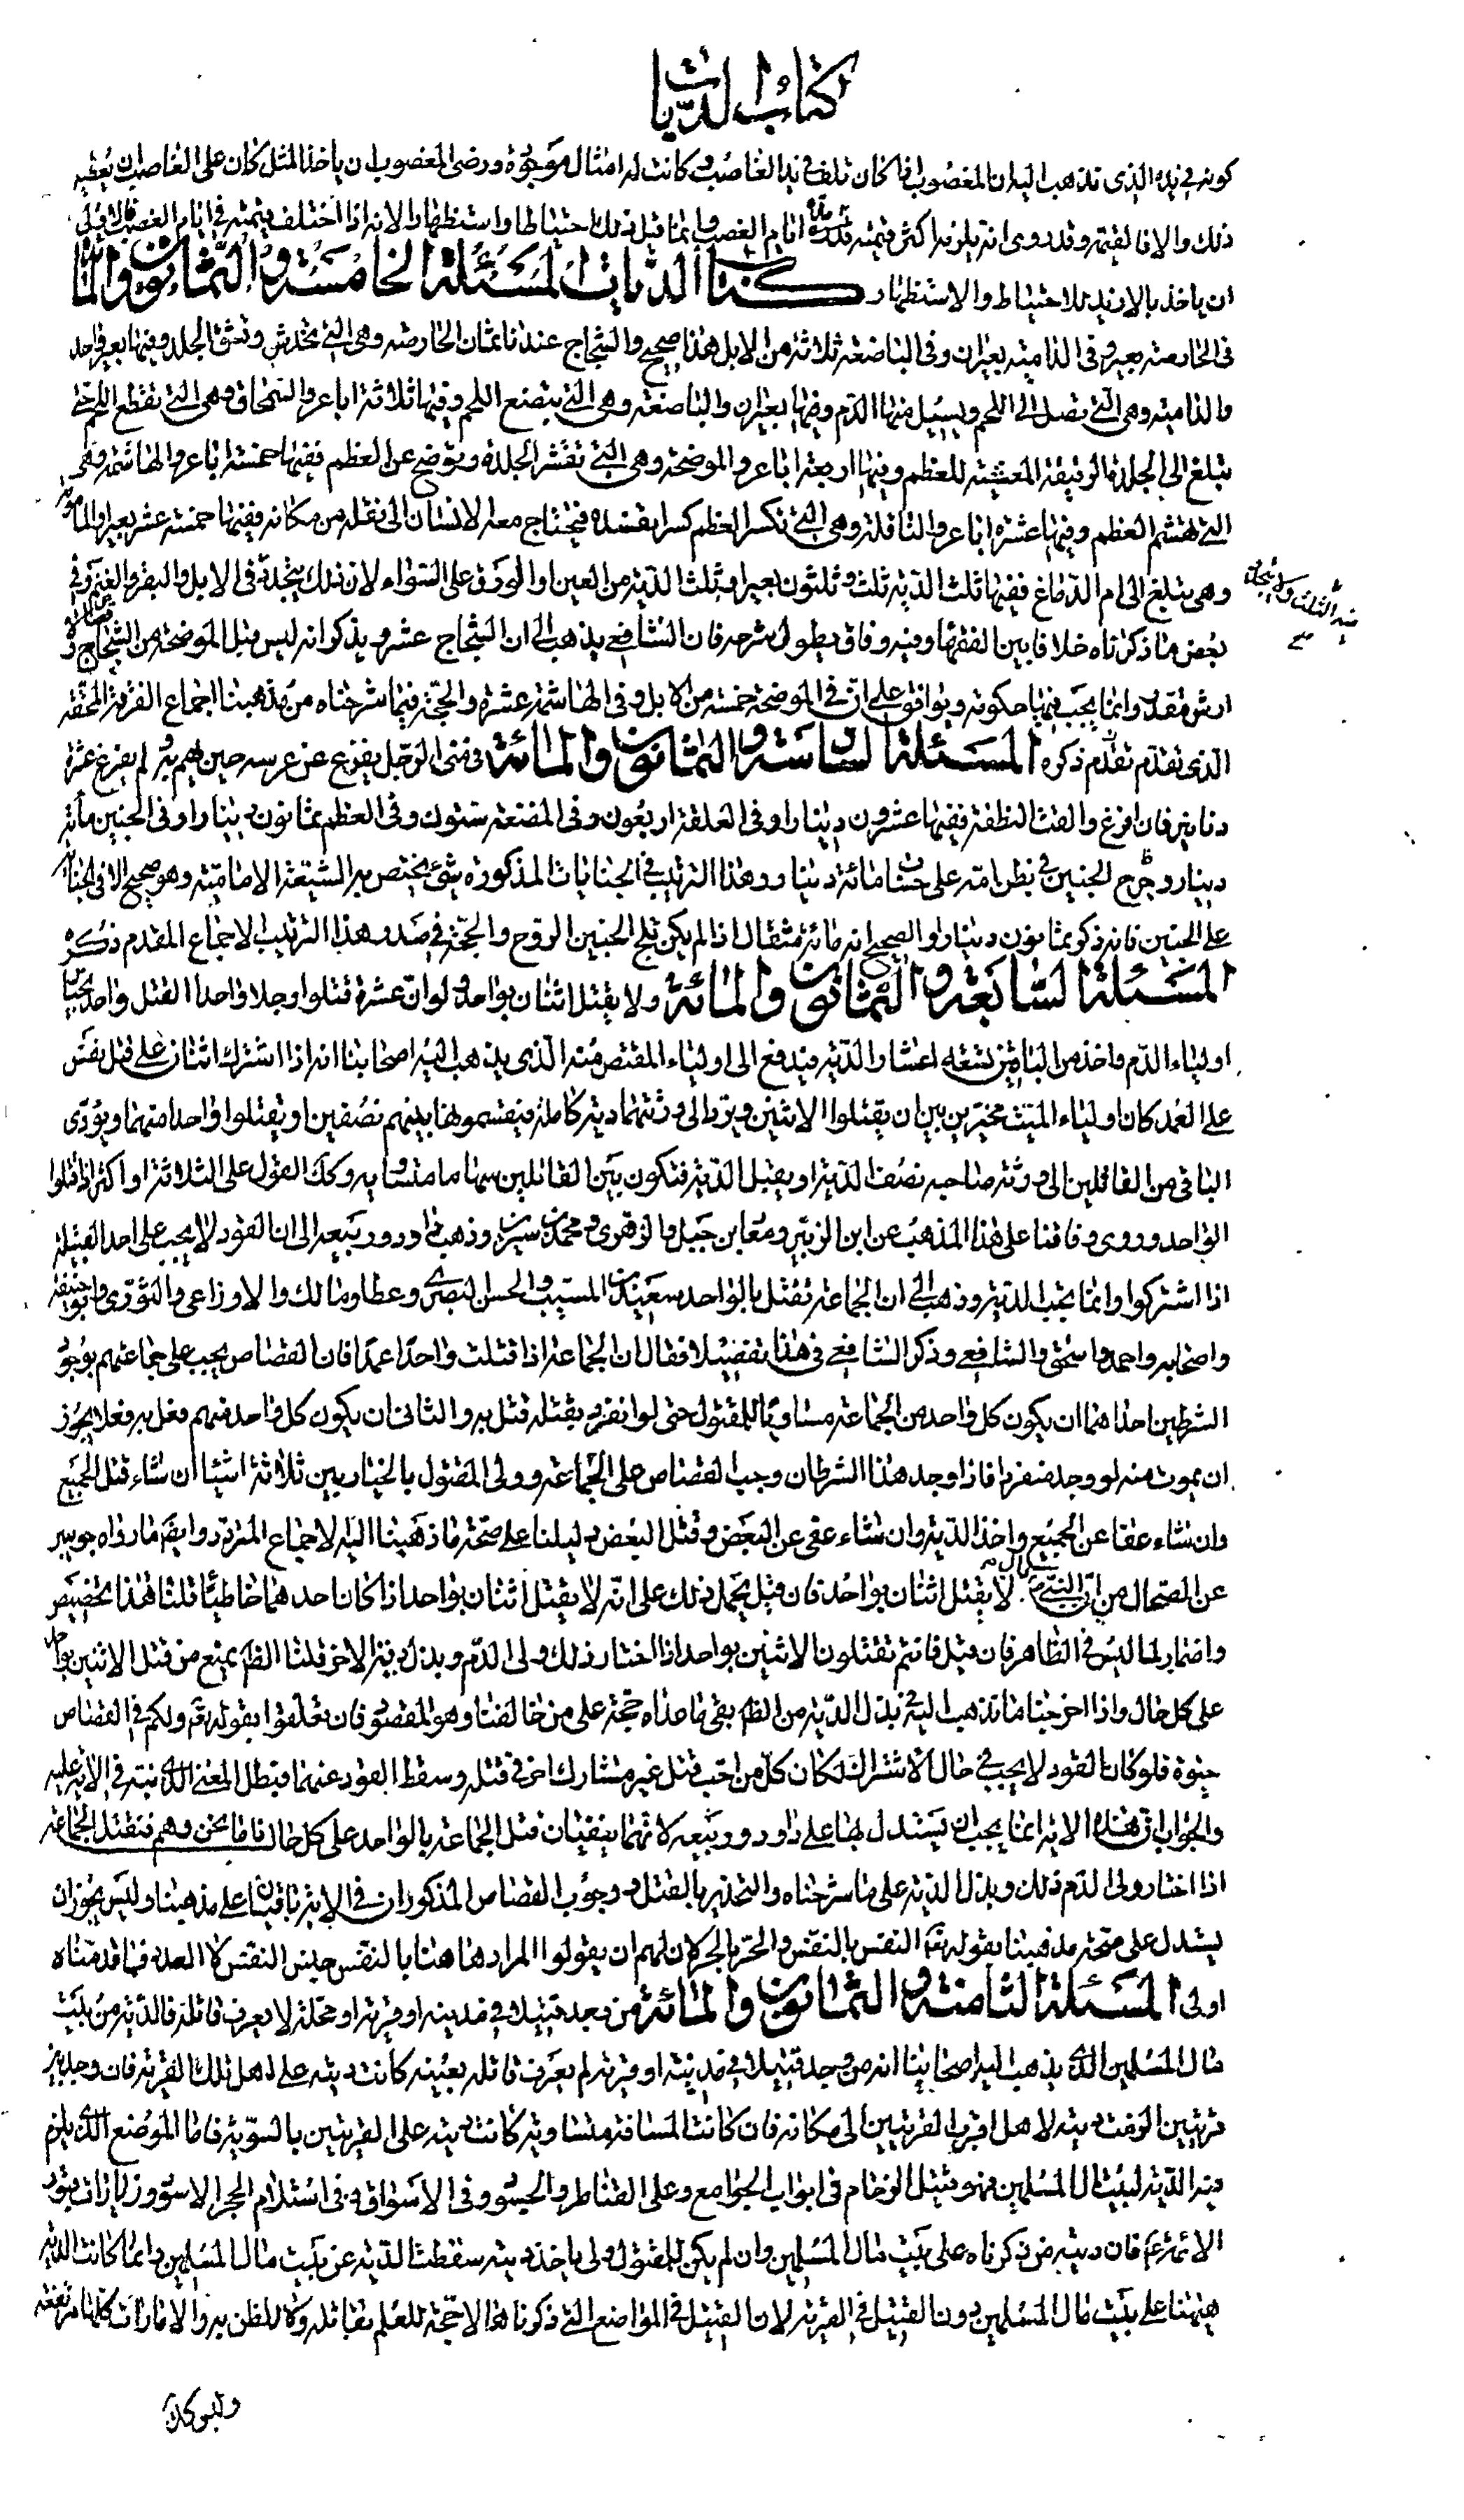 كتاب الديات
كونه في يده الذي نذهب اليه ان المغصوب اذا كان تلف في يد الغاصب وكانت له امثال موجودة ورضى المغصوب ان ياخذ المثل كان على الغاصب ان يعطيه
ذلك والا فالقيمة وقد روى انه يلزمه اكثر قيمته مدة ايام الغصب وانما قيل ذلك احتياطا واستظهارا لانه اذا اختلف قيمته في ايام الغصب فالاولى
ان ياخذ بالازيد للاحتياط والاستظهار كتاب الديات المسئلة الخامسة والثمانون والمائة
في الخارصة بعير وفي الدامية بعيران وفي الباضعة ثلاثة من الابل هذا صحيح والشجاج عندنا ثمان الخارصة وهى التي تخدش وتشق الجلد وفيها بعير واحد
والدامية وهى التي تصل الى اللحم ويسيل منها الدم وفيها بعيران والباضعة وهى التي تبضع اللحم وفيها ثلاثة اباعر والسمحاق وهى التي تقطع اللحم حتى
تبلغ الى الجلدة الرقيقة المغشية للعظم وفيها اربعة اباعر والموضحة وهى التي تقشر الجلدة وتوضح عن العظم ففيها خمسة اباعر والهاشمة وهى
التي تهشم العظم وفيها عشرة اباعر والناقلة وهى التي تكسر العظم كسرا يفسده فيحتاج معه الانسان الى نقله من مكانه ففيها خمسة عشر بعيرا والمامومة
وهى تبلغ الى ام الدماغ ففيها ثلث الدية ثلث وثلثون بعيرا وثلث الدية من العين او الورق على السواء لان ذلك يتحدد فيه الثلث ولا يتحدد في الابل والبقر والغنم وفي
بعض ما ذكرناه خلافا بين الفقهاء وفيه وفاق يطول شرحه فان الشافعي يذهب الى ان الشجاج عشر ويذكر انه ليس قبل الموضحة من الشجاج
ارش مقدر وانما يجب فيها حكومة ويوافق على ان في الموضحة خمسة من الابل وفي الهاشمة عشرة والحجة فيما شرحناه من مذهبنا اجماع الفرقة المحقة
الذي تقدم تقدم ذكره المسئلة السادسة والثمانون والمائة في منى الرجل يفزع عن عرسه حين يهم به ولم يفرغ عشرة
دنانير فان افرغ والقت النطفة ففيها عشرون دينارا وفي العلقة اربعون وفي المضغة ستون وفي العظم ثمانون دينارا وفي الجنين مائة
دينار وجرح الجنين في بطن امه على حساب مائة دينار وهذا الترتيب في الجنايات المذكورة شئ يختص به الشيعة الامامية وهو صحيح الا في الجناية
على الجنين فانه ذكر ثمانون دينارا والصحيح انه مائة مثقال اذا لم يكن تلج الجنين الروح والحجة في صدد هذا الترتيب الاجماع المقدم ذكره
المسئلة السابعة والثمانون والمائة ولا يقتل اثنان بواحد ولو ان عشرة قتلوا رجلا واحدا القتل واحد
اولياء الدم واخذ من الباقين تسعة اعشار الدية فيدفع الى اولياء المقتص منه الذي يذهب اليه اصحابنا انه اذا اشترك اثنان على قتل نفس
على العمد كان اولياء الميت مخيرين بين ان يقتلوا الاثنين ويرد الى ورثتهما دية كاملة فيقسموها بينهم نصفين او يقتلوا واحدا منهما ويؤدى
الباقي من القاتلين الى ورثة صاحبه نصف الدية او يقبل الدية فتكون بين القاتلين سهاما متساوية وكذا القول على الثلاثة او اكثر اذا قتلوا
الواحد وروى وفاقنا على هذا المذهب عن ابن الزبير ومعاذ بن جبل والزهرى ومحمد بن سيرين وذهب داود وربيعة الى ان القود لا يجب على احد القتلة
اذا اشتركوا وانما يجب الدية وذهب الى ان الجماعة تقتل بالواحد سعيد بن المسيب والحسن البصري وعطا ومالك والاوزاعي والثورى وابو حنيفة
واصحابه واحمد واسحق والشافعي وذكر الشافعي في هذا تفضيلا فقال ان الجماعة اذا قتلت واحدا عمدا فان القصاص يجب على جماعتهم بوجود
الشرطين احداهما ان يكون كل واحد من الجماعة مساويا للمقتول حتى لو انفرد بقتله قتل به والثاني ان يكون كل واحد منهم فعل به فعلا يجوز
ان يموت منه لو وجد منفردا فاذا وجد هذا الشرطان وجب القصاص على الجماعة وولى المقتول بالخيار بين ثلاثة اشيا ان شاء قتل الجميع
وان شاء عفا عن الجميع واخذ الدية وان شاء عفى عن البعض وقتل البعض دليلنا على صحة ما ذهبنا اليه الاجماع المتردد وايضا ما رواه جويبر
عن الضحاك من ان النبي ص قال لا يقتل اثنان بواحد فان قيل يحمل ذلك على انه لا يقتل اثنان بواحد اذا كان احدهما خاطيئا قلنا هذا تخصيص
واضمار لما ليس في الظاهر فان قيل فانتم تقتلون الاثنين بواحد اذا اختار ذلك ولى الدم وبذل دية الاخر قلنا الظم يمنع من قتل الاثنين بواحد
على كل حال واذا اخرجنا ما نذهب اليه في بذل الدية من الظم بقى ما عداه حجة على من خالفنا وهو المقصود فان تعلقوا بقوله تع ولكم في القصاص
حيوة فلو كان القود لا يجب في حال الاشتراك لكان كل من احب قتل غيره شارك اخر في قتله وسقط القود عنهما فيبطل المعنى الذي نبه في الاية عليه
والجواب ان هذه الاية انما يجب ان يستدل بها على داود وربيعة لانهما ينفيان قتل الجماعة بالواحد على كل حال فاما نحن وهم فنقتل الجماعة
اذا اختار ولى الدم ذلك وبذل الدية على ما شرحناه والتحذير بالقتل ووجوب القصاص المذكوران في الاية ثابتان على مذهبنا وليس يجوز ان
يستدل على صحة مذهبنا بقوله تع النفس بالنفس والحر بالحر كان لهم ان يقولوا المراد هاهنا بالنفس جنس النفس لا العدد فما قدمناه
اولى المسئلة الثامنة والثمانون والمائة من وجد قتيلا في مدينة او قرية او محلة لا يعرف قاتله فالدية من بيت
مال المسلمين الذي يذهب اليه اصحابنا انه من وجد قتيلا في مدينة او قرية لم يعرف قاتله بعينه كانت ديته على اهل تلك القرية فان وجد بين
قريتين الزمت ديته لاهل اقرب القريتين الى مكانه فان كانت المسافة متساوية كانت ديته على القريتين بالسوية فاما الموضع الذي يلزم
فيه الدية لبيت مال المسلمين فهو قتيل الزحام في ابواب الجوامع وعلى القناطر والجسور وفي الاسواق وفي استلام الحجر الاسود وزيارات قبور
الائمة ع فان دية من ذكرناه على بيت مال المسلمين وان لم يكن للمقتول ولى ياخذ ديته سقطت الدية عن بيت مال المسلمين وانما كانت الدية
هيهنا على بيت مال المسلمين دون القتيل في القرية لان القتيل في المواضع التي ذكرناها لا حجة للعلم بقاتله وكا للظن به والامارات كلها مرتفعة
وليس كذلك